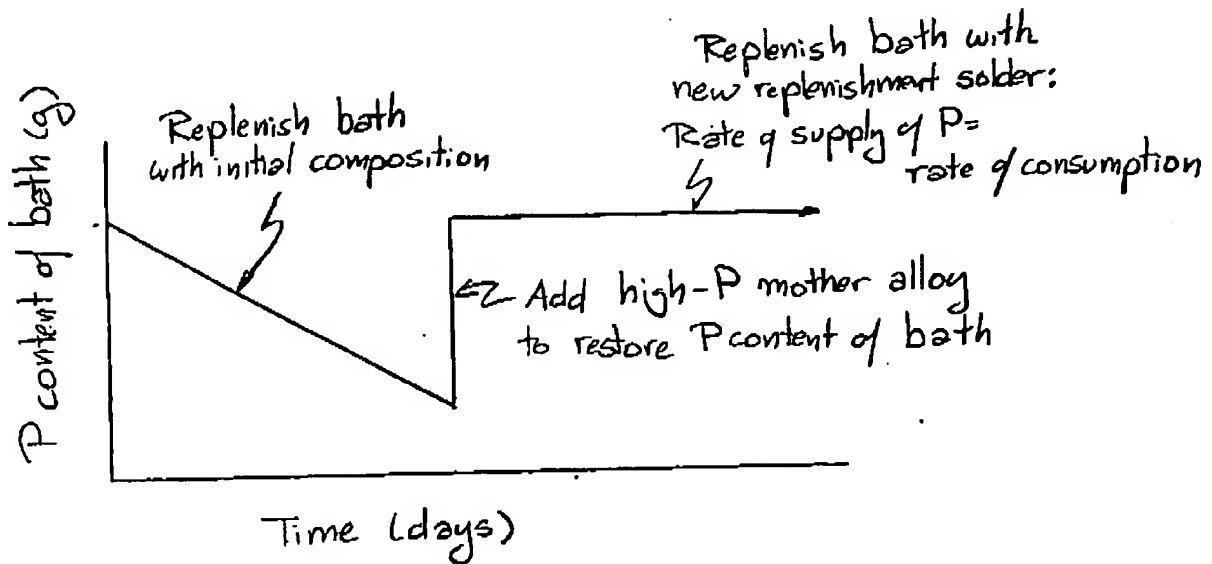 P content of bath (g)
Replenish bath
with initial composition
Replenish bath with
new replenishment solder:
Rate of supply of P=
rate of consumption
Add high-P mother alloy
to restore P content of bath
Time (days)